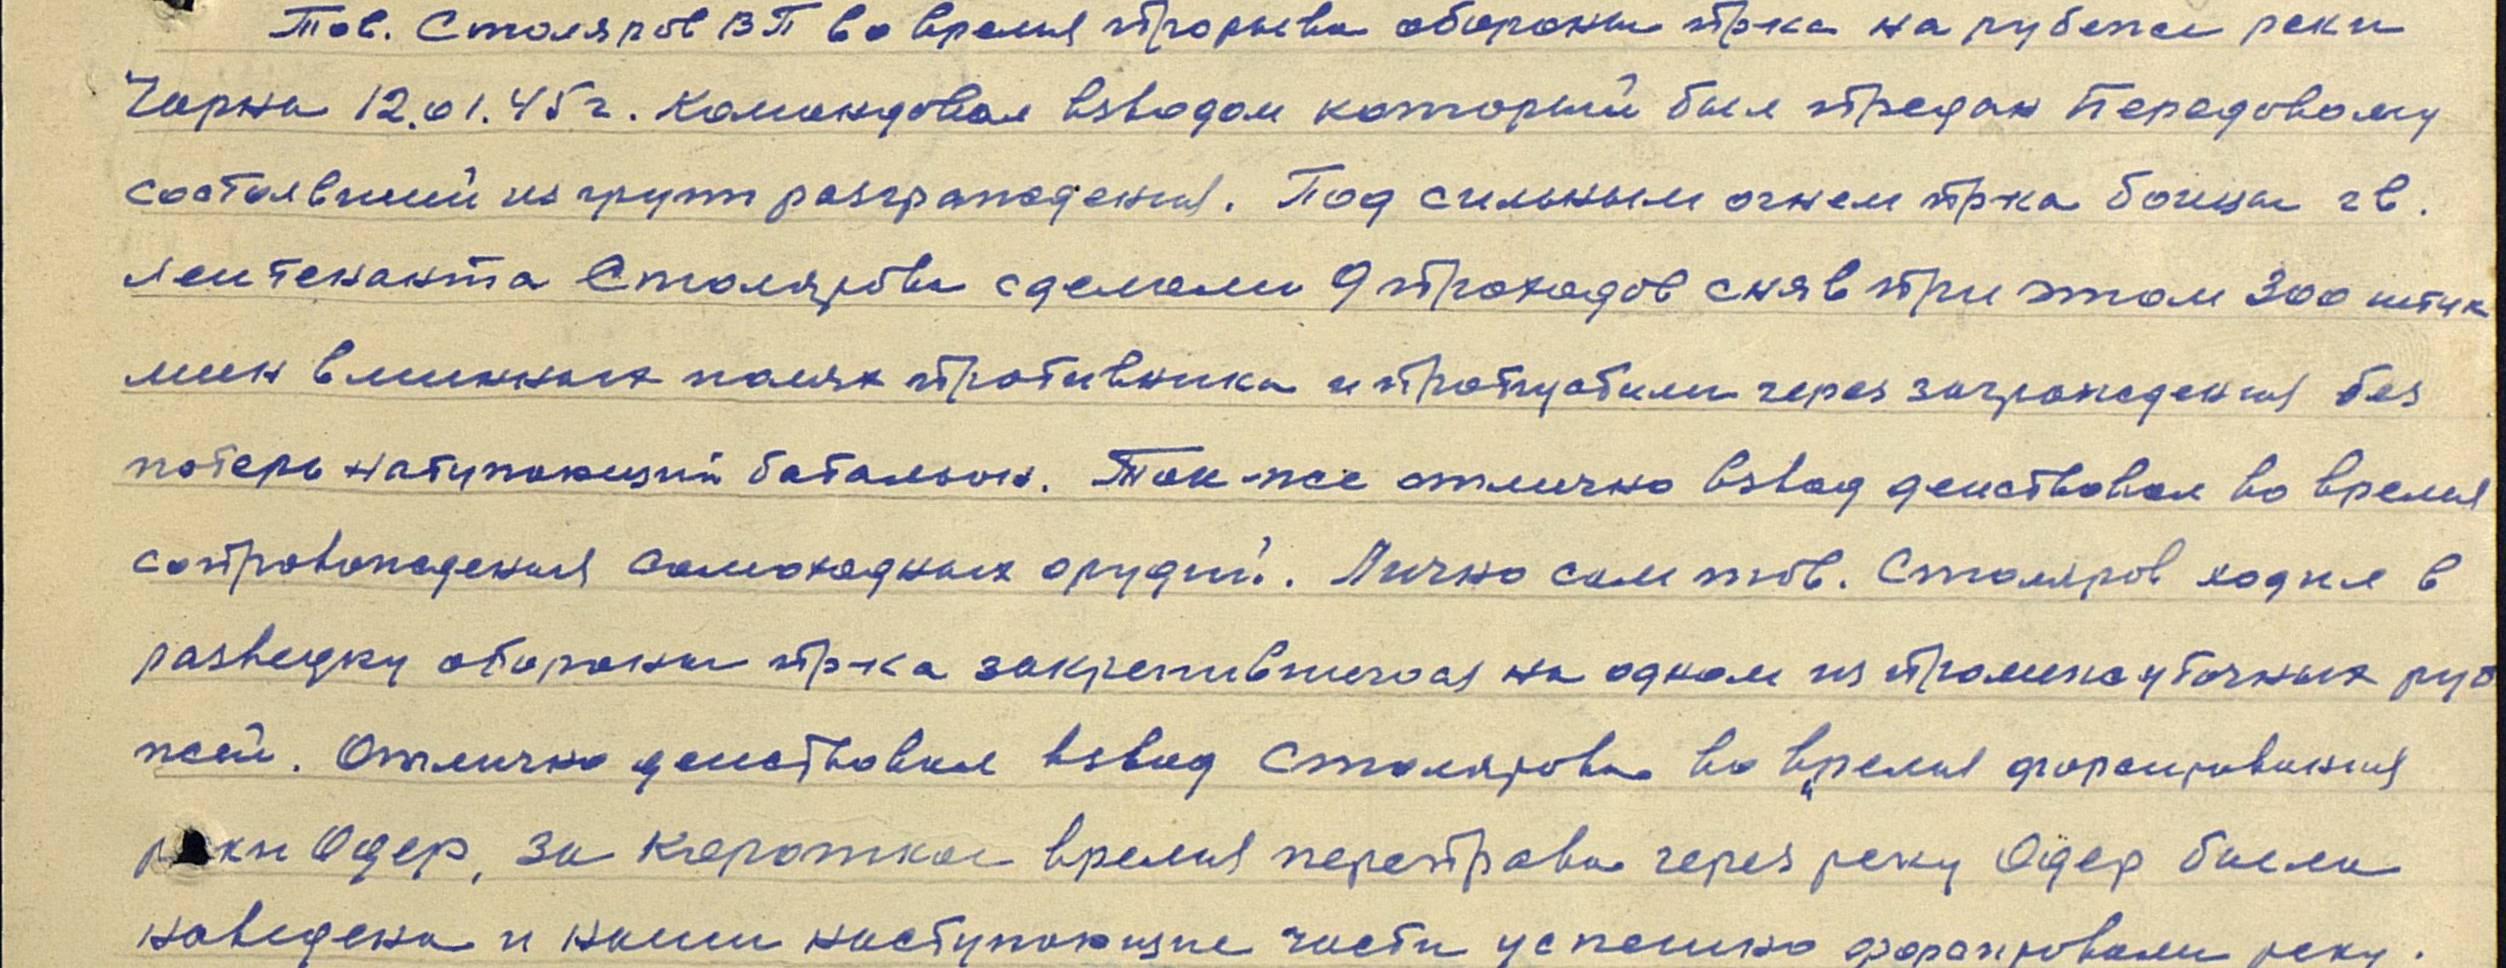 Тов. Столяров ВП во время прорыва обороны пр-ка на рубеже реки
Чарна 12.01.45 г. командовал взводом который был предан Передовому
состоявший из групп разграждения. Под сильным огнем пр-ка бойцы гв.
лейтенанта Столярова сделали 9 проходов сняв при этом 300 штук
мин в минных полях противника и пропустили через заграждения без
потерь натупающий батальон. Так-же отлично взвод действовал во время
сопровождения самоходных орудий. Лично сам тов. Столяров ходил в
разведку обороны пр-ка закрепившегося на одном из промежуточных руб
жей. Отлично действовал взвод Столярова во время форсирования
реки Одер, за короткое время переправа через реку Одер была
наведена и наши наступающие части успешно форсировали реку.